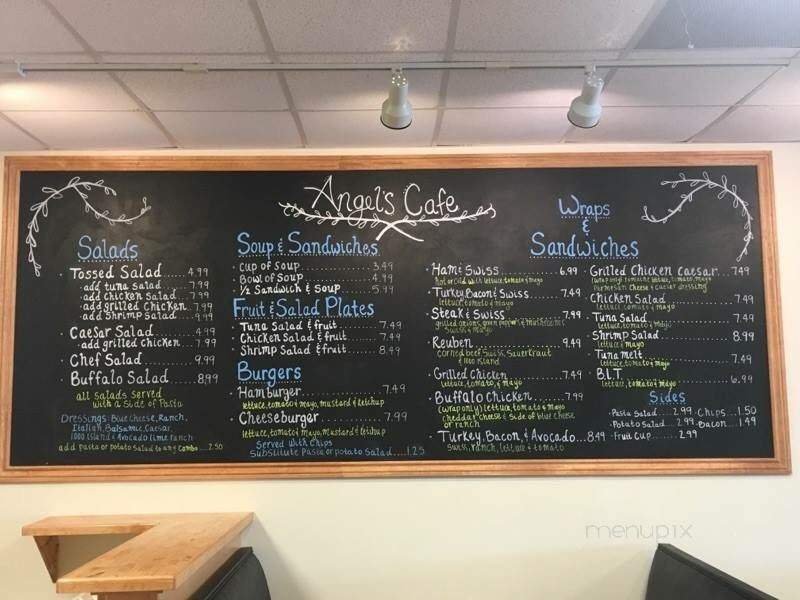 Angel's Cafe
Salads
Tossed Salad.....4.99
add tuna salad.....7.99
add chicken salad...7.99
add grilled chicken...7.99
add shrimp salad...9.99
Caesar Salad.......4.99
add grilled chicken..7.99
Chef Salad.........9.99
Buffalo Salad......8.99
all salads served
with a side of Pasta
Dressings: Blue Cheese, Ranch,
Italian, Balsamic, Caesar,
1000 Island & Avocado lime ranch
add pasta or potato salad to any combo...2.50
Soup & Sandwiches
Cup of Soup..............3.49
Bowl of Soup.............4.99
½ Sandwich & Soup........5.99
Fruit & Salad Plates
Tuna Salad & fruit.......7.49
Chicken Salad & fruit....7.49
Shrimp Salad & fruit.....8.49
Burgers
Hamburger...........7.49
lettuce, tomato & mayo, mustard & ketchup
Cheeseburger........7.99
lettuce, tomato & mayo, mustard & ketchup
Served with chips
Substitute Pasta or potato Salad....1.25
Wraps
&
Sandwiches
Ham & Swiss.........6.99
Hot or Cold with lettuce, tomato & mayo
Turkey, Bacon & Swiss.....7.49
lettuce, tomato & mayo
Steak & Swiss.......7.99
grilled onions, green peppers & mushrooms
Swiss & mayo
Reuben..............7.49
corned beef, Swiss, Sauerkraut
& 1000 island
Grilled Chicken.....7.49
lettuce, tomato, & mayo
Buffalo Chicken.....7.99
(wrap only) lettuce, tomato & mayo
cheddar cheese & side of blue cheese
or ranch
Turkey, Bacon, & Avocado...8.49
Swiss, ranch, lettuce & tomato
Grilled Chicken Caesar...7.49
(wrap only) romaine lettuce, tomato, mayo
Parmesan Cheese & caesar dressing
Chicken Salad..........7.49
lettuce, tomato & mayo
Tuna Salad.............7.49
lettuce, tomato & mayo
Shrimp Salad...........8.99
lettuce & mayo
Tuna melt..............7.49
lettuce, tomato & mayo
B.L.T..................6.99
lettuce, tomato & mayo
Sides
Pasta Salad...2.99 Chips....1.50
Potato Salad...2.99 Bacon...1.49
Fruit Cup......2.99
menupix